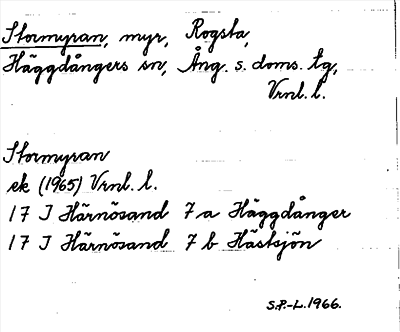 Stormyran, myr, Rogsta,
Häggdångers sn, Ång. s. doms. tg,
Vrnl. l.
Stormyran
ek (1965) Vrnl. l.
17 J Härnösand 7 a Häggdånger
17 J Härnösand 7 b Hästsjön
S.P.-L. 1966.